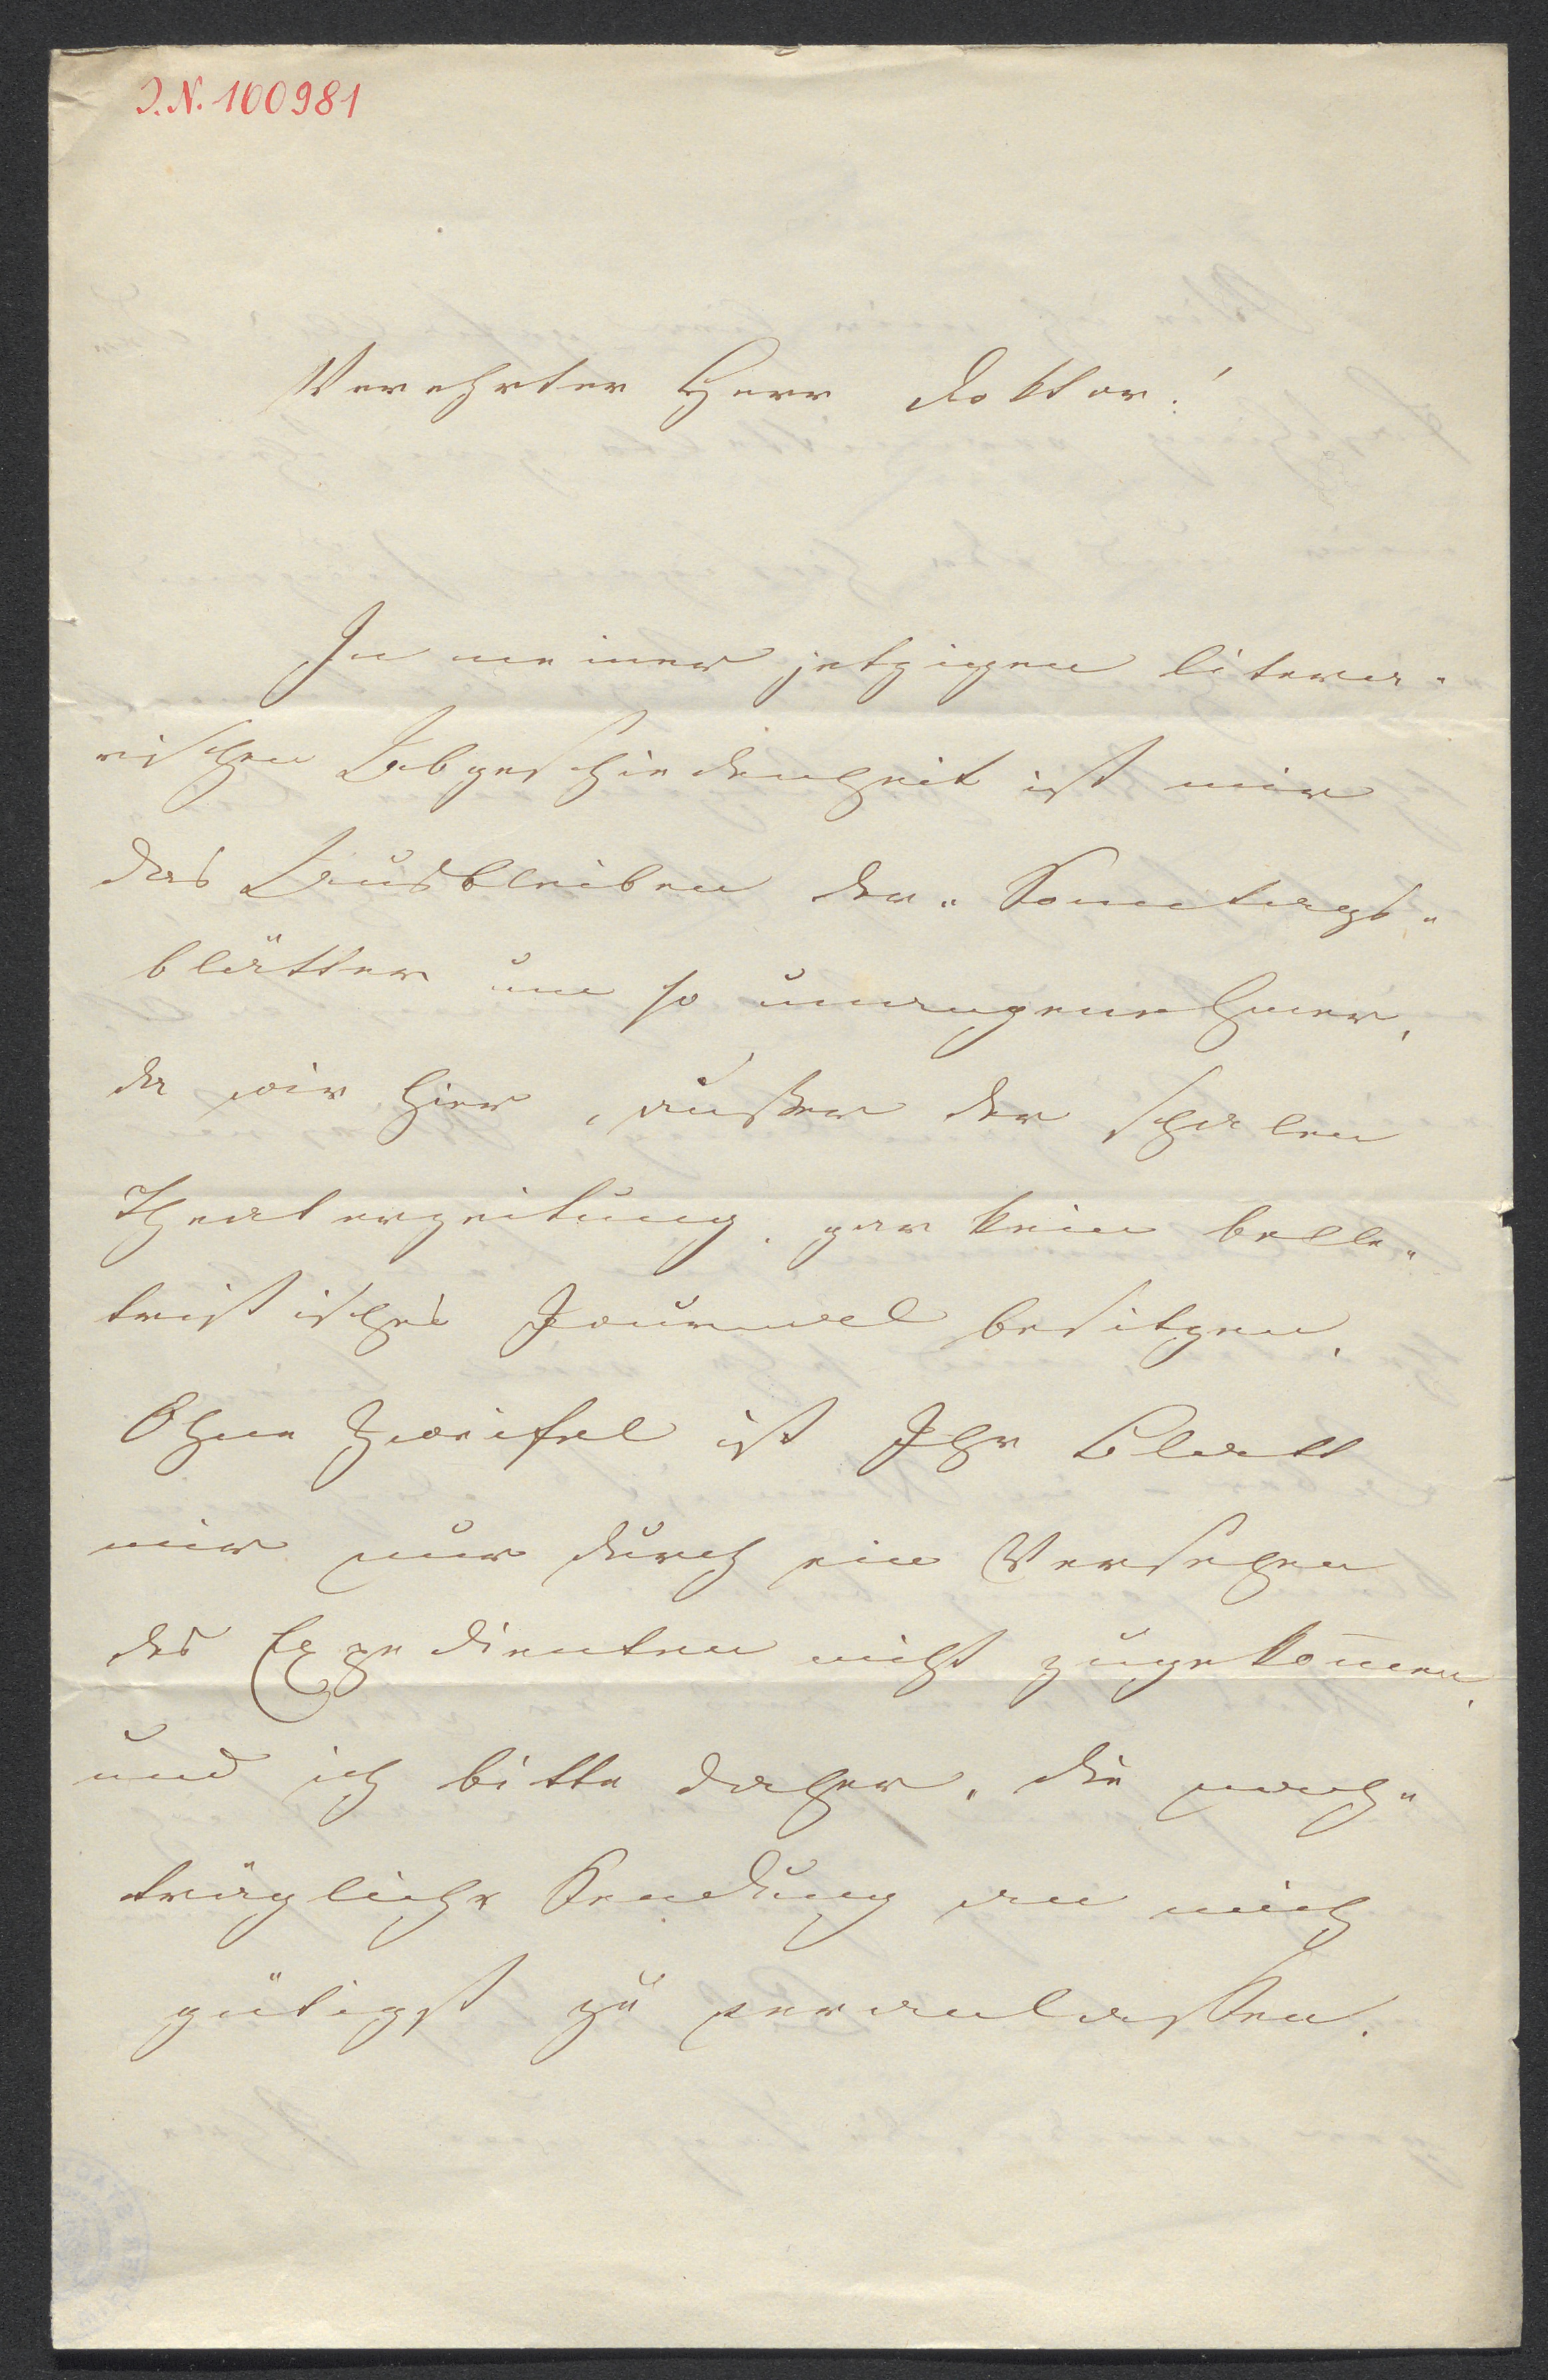 J.N. 100981
Verehrter Herr Doktor!
In meiner jetzigen litera-
rischen Abgeschiedenheit ist mir
das Ausbleiben der „Sonntags-
blätter um so unangenehmer,
da wir hier, außer der schalen
Theaterzeitung, gar kein belle-
tristisches Journal besitzen.
Ohne Zweifel ist Ihr Blatt
mir nur durch ein Versehen
des Expedienten nicht zugekom̄en,
und ich bitte daher, die nach-
trägliche Sendung an mich
gütigst zu veranlassen.